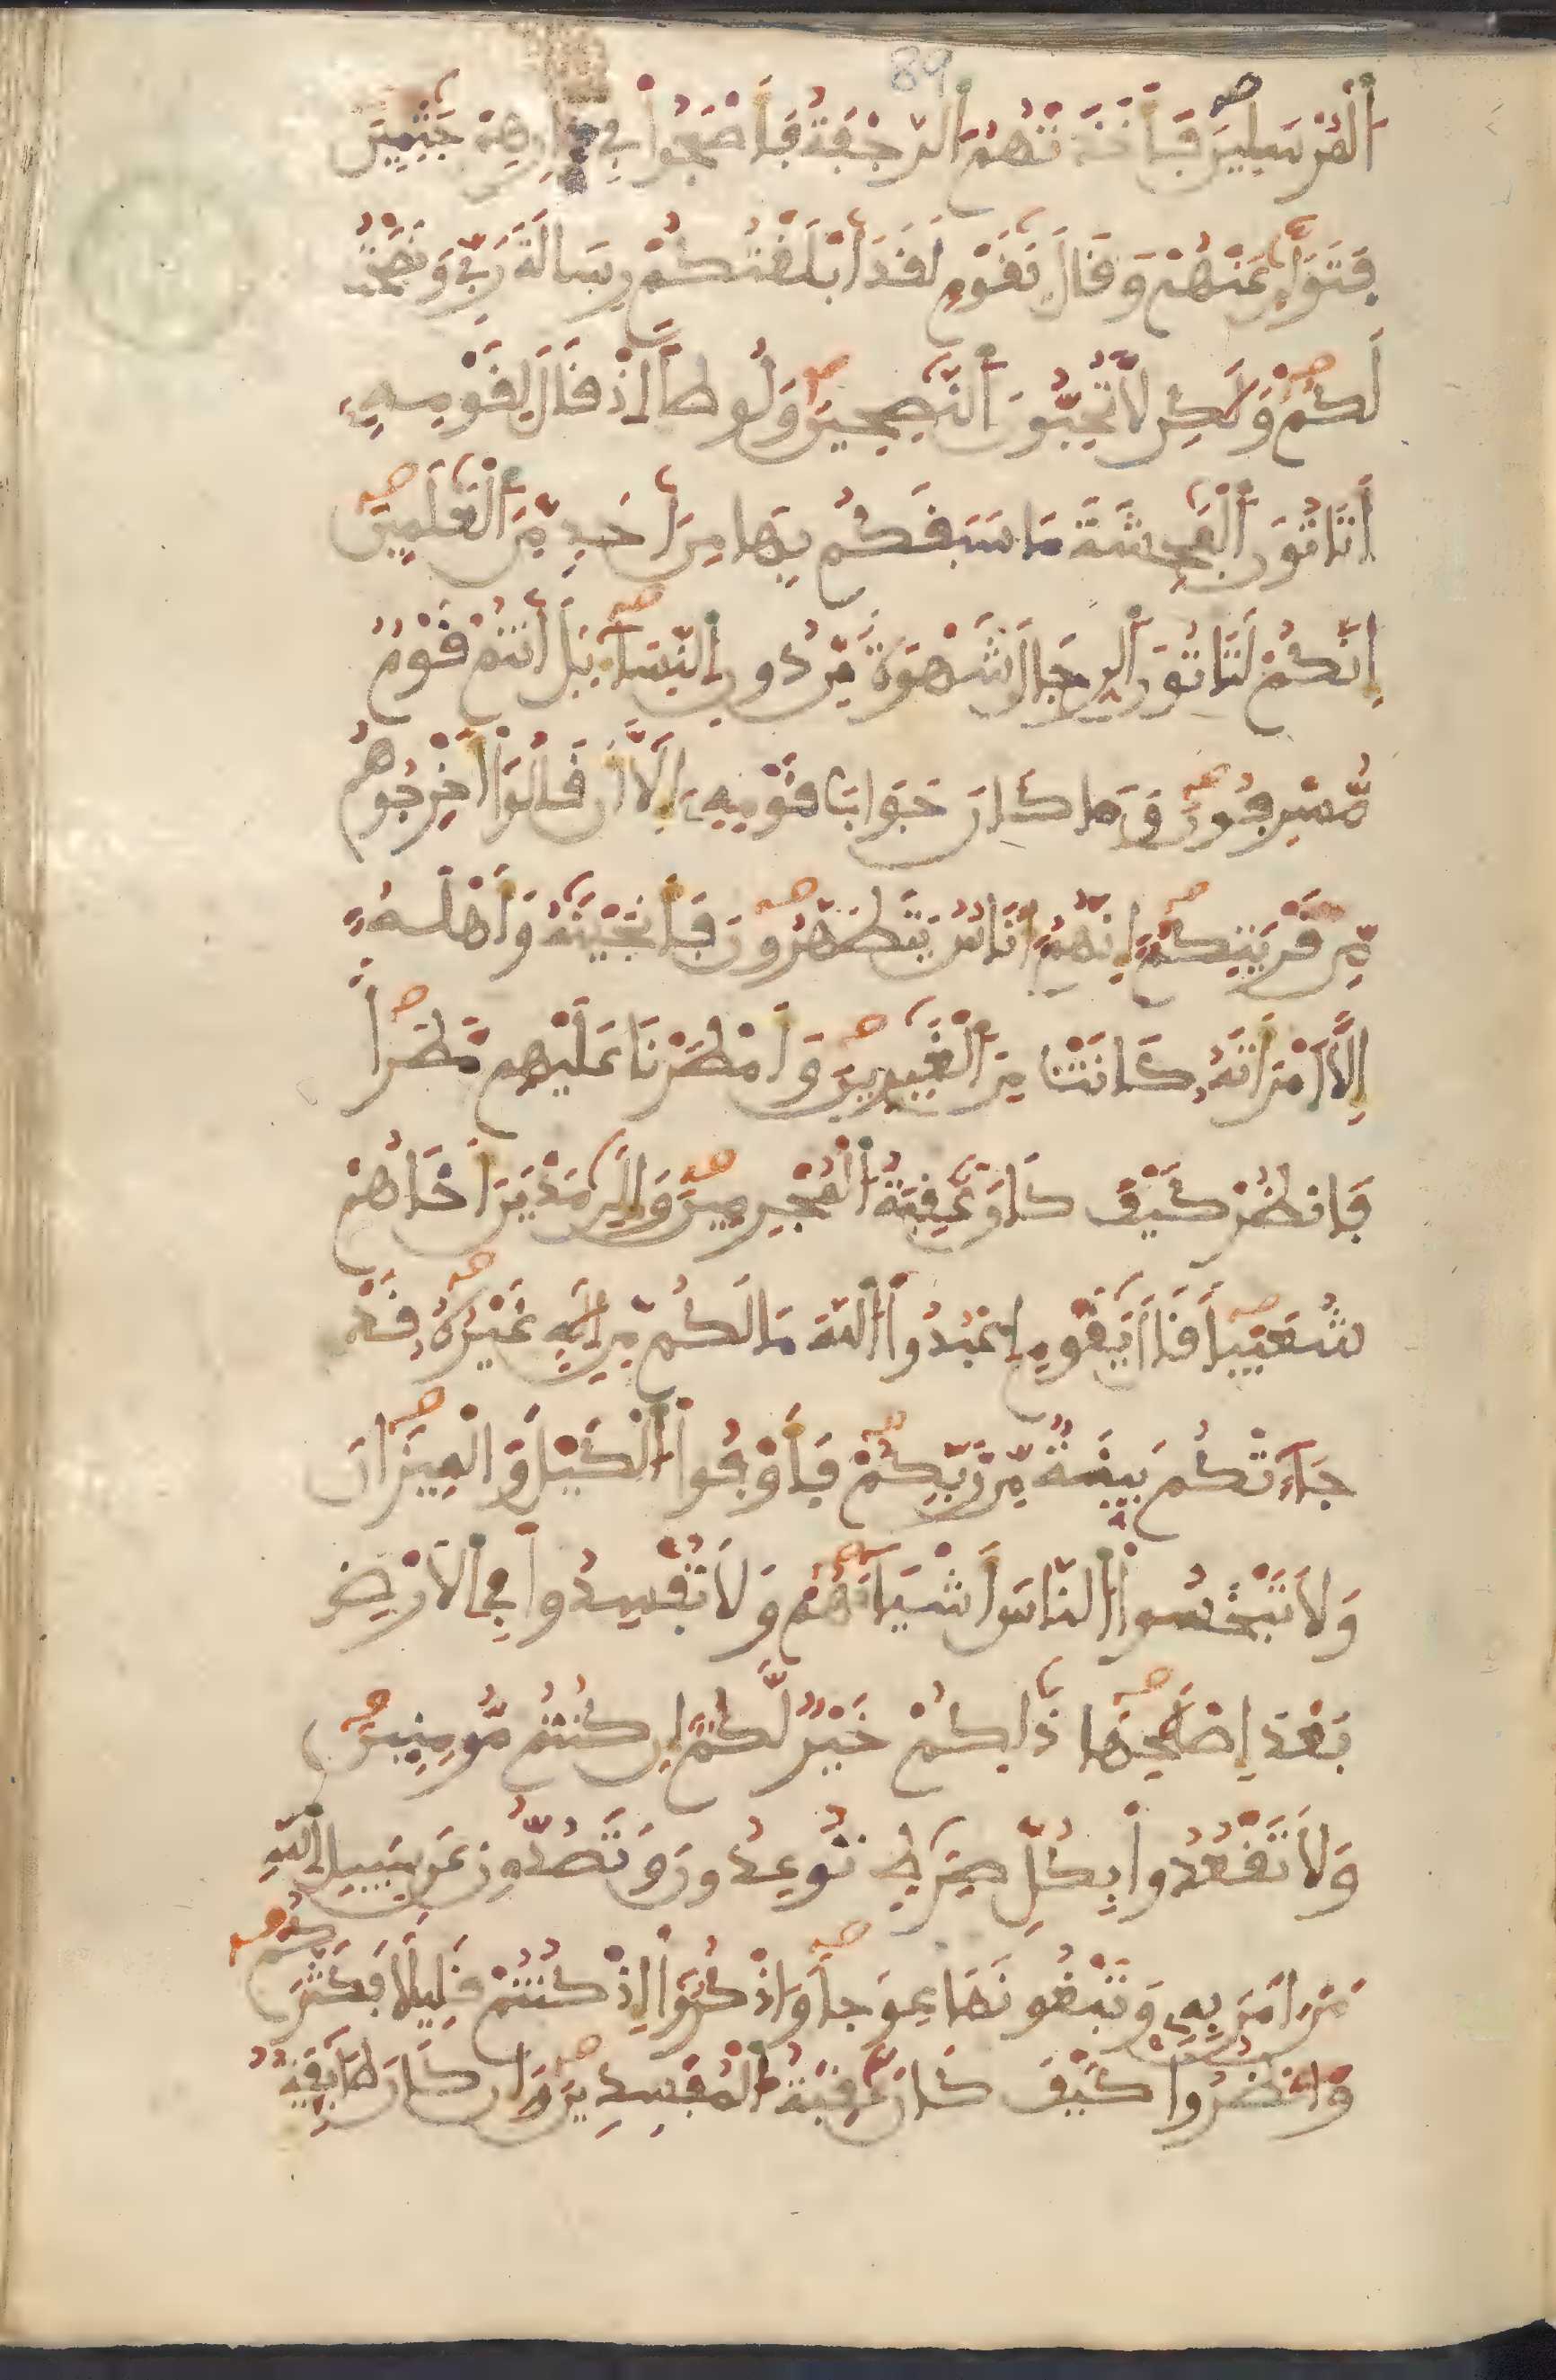 89
اَ۬لْمُرْسَلِينَ فَأَخَذَتْهُمُ اُ۬لرَّجْفَةُ فَأَصْبَحُواْ فِے د۪ارِهِمْ جَٰثِمِينَ
فَتَوَلّ۪يٰ عَنْهُمْ وَقَالَ يَٰقَوْمِ لَقَدَ اَبْلَغْتُكُمْ رِسَالَةَ رَبِّے وَنَصَحْتُ
لَكُمْ وَلَٰكِن لَّا تُحِبُّونَ اَ۬لنَّٰصِحِينَ وَلُوطاً اِذْ قَالَ لِقَوْمِهِۦٓ
أَتَاتُونَ اَ۬لْفَٰحِشَةَ مَا سَبَقَكُم بِهَا مِنَ اَحَدٖ مِّنَ اَ۬لْعَٰلَمِينَ
إِنَّكُمْ لَتَاتُونَ اَ۬لرِّجَالَ شَهْوَةٗ مِّن دُونِ اِ۬لنِّسَآءِ بَلَ اَنتُمْ قَوْمٞ
مُّسْرِفُونَ وَمَا كَانَ جَوَابَ قَوْمِهِۦٓ إِلَّآ أَن قَالُوٓاْ أَخْرِجُوهُم
مِّن قَرْيَتِكُمُۥٓ إِنَّهُمُۥٓ أُنَاسٞ يَتَطَهَّرُونَ فَأَنجَيْنَٰهُ وَأَهْلَهُۥٓ
إِلَّا اَ۪مْرَأَتَهُۥ كَانَتْ مِنَ اَ۬لْغَٰبِرِينَ وَأَمْطَرْنَا عَلَيْهِم مَّطَراٗ
فَانظُرْ كَيْفَ كَانَ عَٰقِبَةُ اُ۬لْمُجْرِمِينَ وَإِلَيٰ مَدْيَنَ أَخَاهُمْ
شُعَيْباٗ قَالَ يَٰقَوْمِ اِ۟عْبُدُواْ اُ۬للَّهَ مَا لَكُم مِّنِ اِلَٰهٍ غَيْرُهُۥ قَدْ
جَآءَتْكُم بَيِّنَةٞ مِّن رَّبِّكُمْ فَأَوْفُواْ اُ۬لْكَيْلَ وَالْمِيزَانَ
وَلَا تَبْخَسُواْ اُ۬لنَّاسَ أَشْيَآءَهُمْ وَلَا تُفْسِدُواْ فِے اِ۬لَارْضِ
بَعْدَ إِصْلَٰحِهَا ذَٰلِكُمْ خَيْرٞ لَّكُمُۥٓ إِن كُنتُم مُّومِنِينَ
وَلَا تَقْعُدُواْ بِكُلِّ صِرَٰطٖ تُوعِدُونَ وَتَصُدُّونَ عَن سَبِيلِ اِ۬للَّهِ
مَنَ اٰمَنَ بِهِۦ وَتَبْغُونَهَا عِوَجاٗ وَاذْكُرُوٓاْ إِذْ كُنتُمْ قَلِيلاٗ فَكَثَّرَكُمْ
وَانظُرُواْ كَيْفَ كَانَ عَٰقِبَةُ اُ۬لْمُفْسِدِينَ وَإِن كَانَ طَآئِفَةٞ